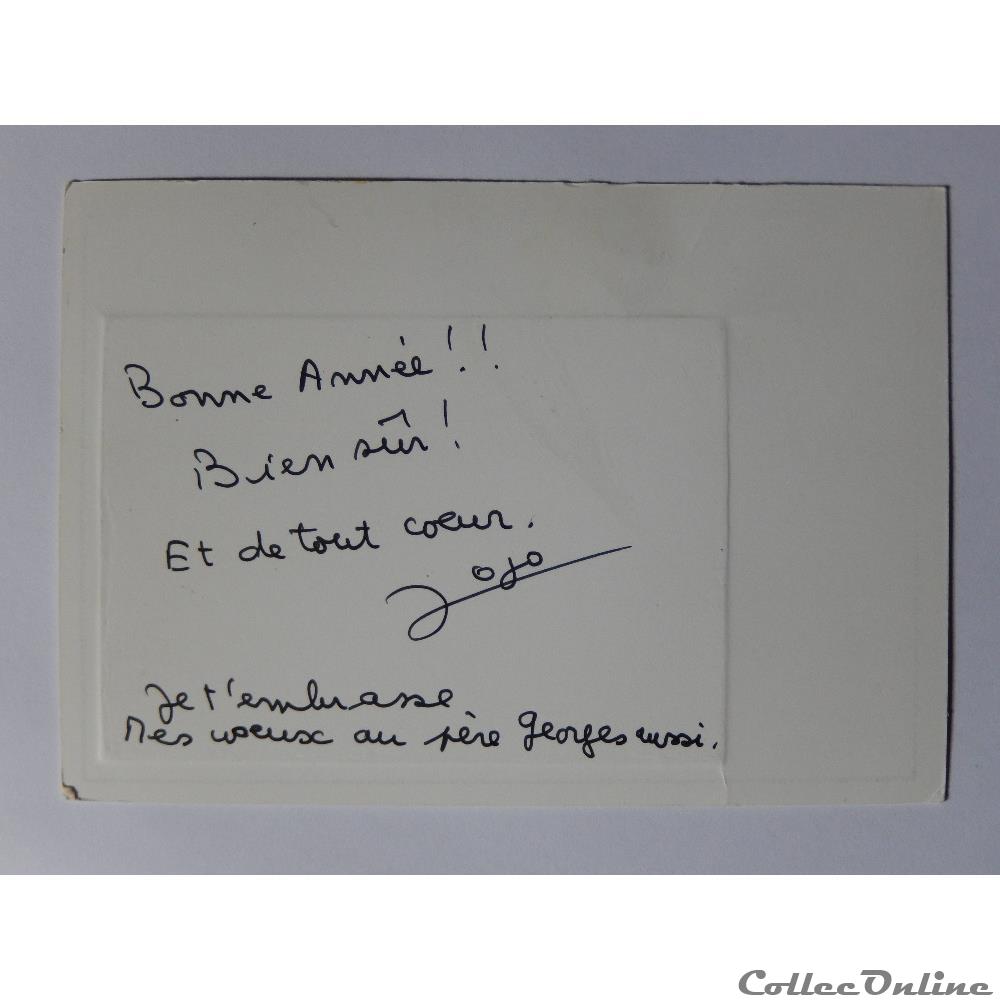 Bonne Année !!
Bien sûr !
Et de tout coeur.
Jojo
Je t'embrasse
Mes voeux au père Georges aussi.
CollecOnline